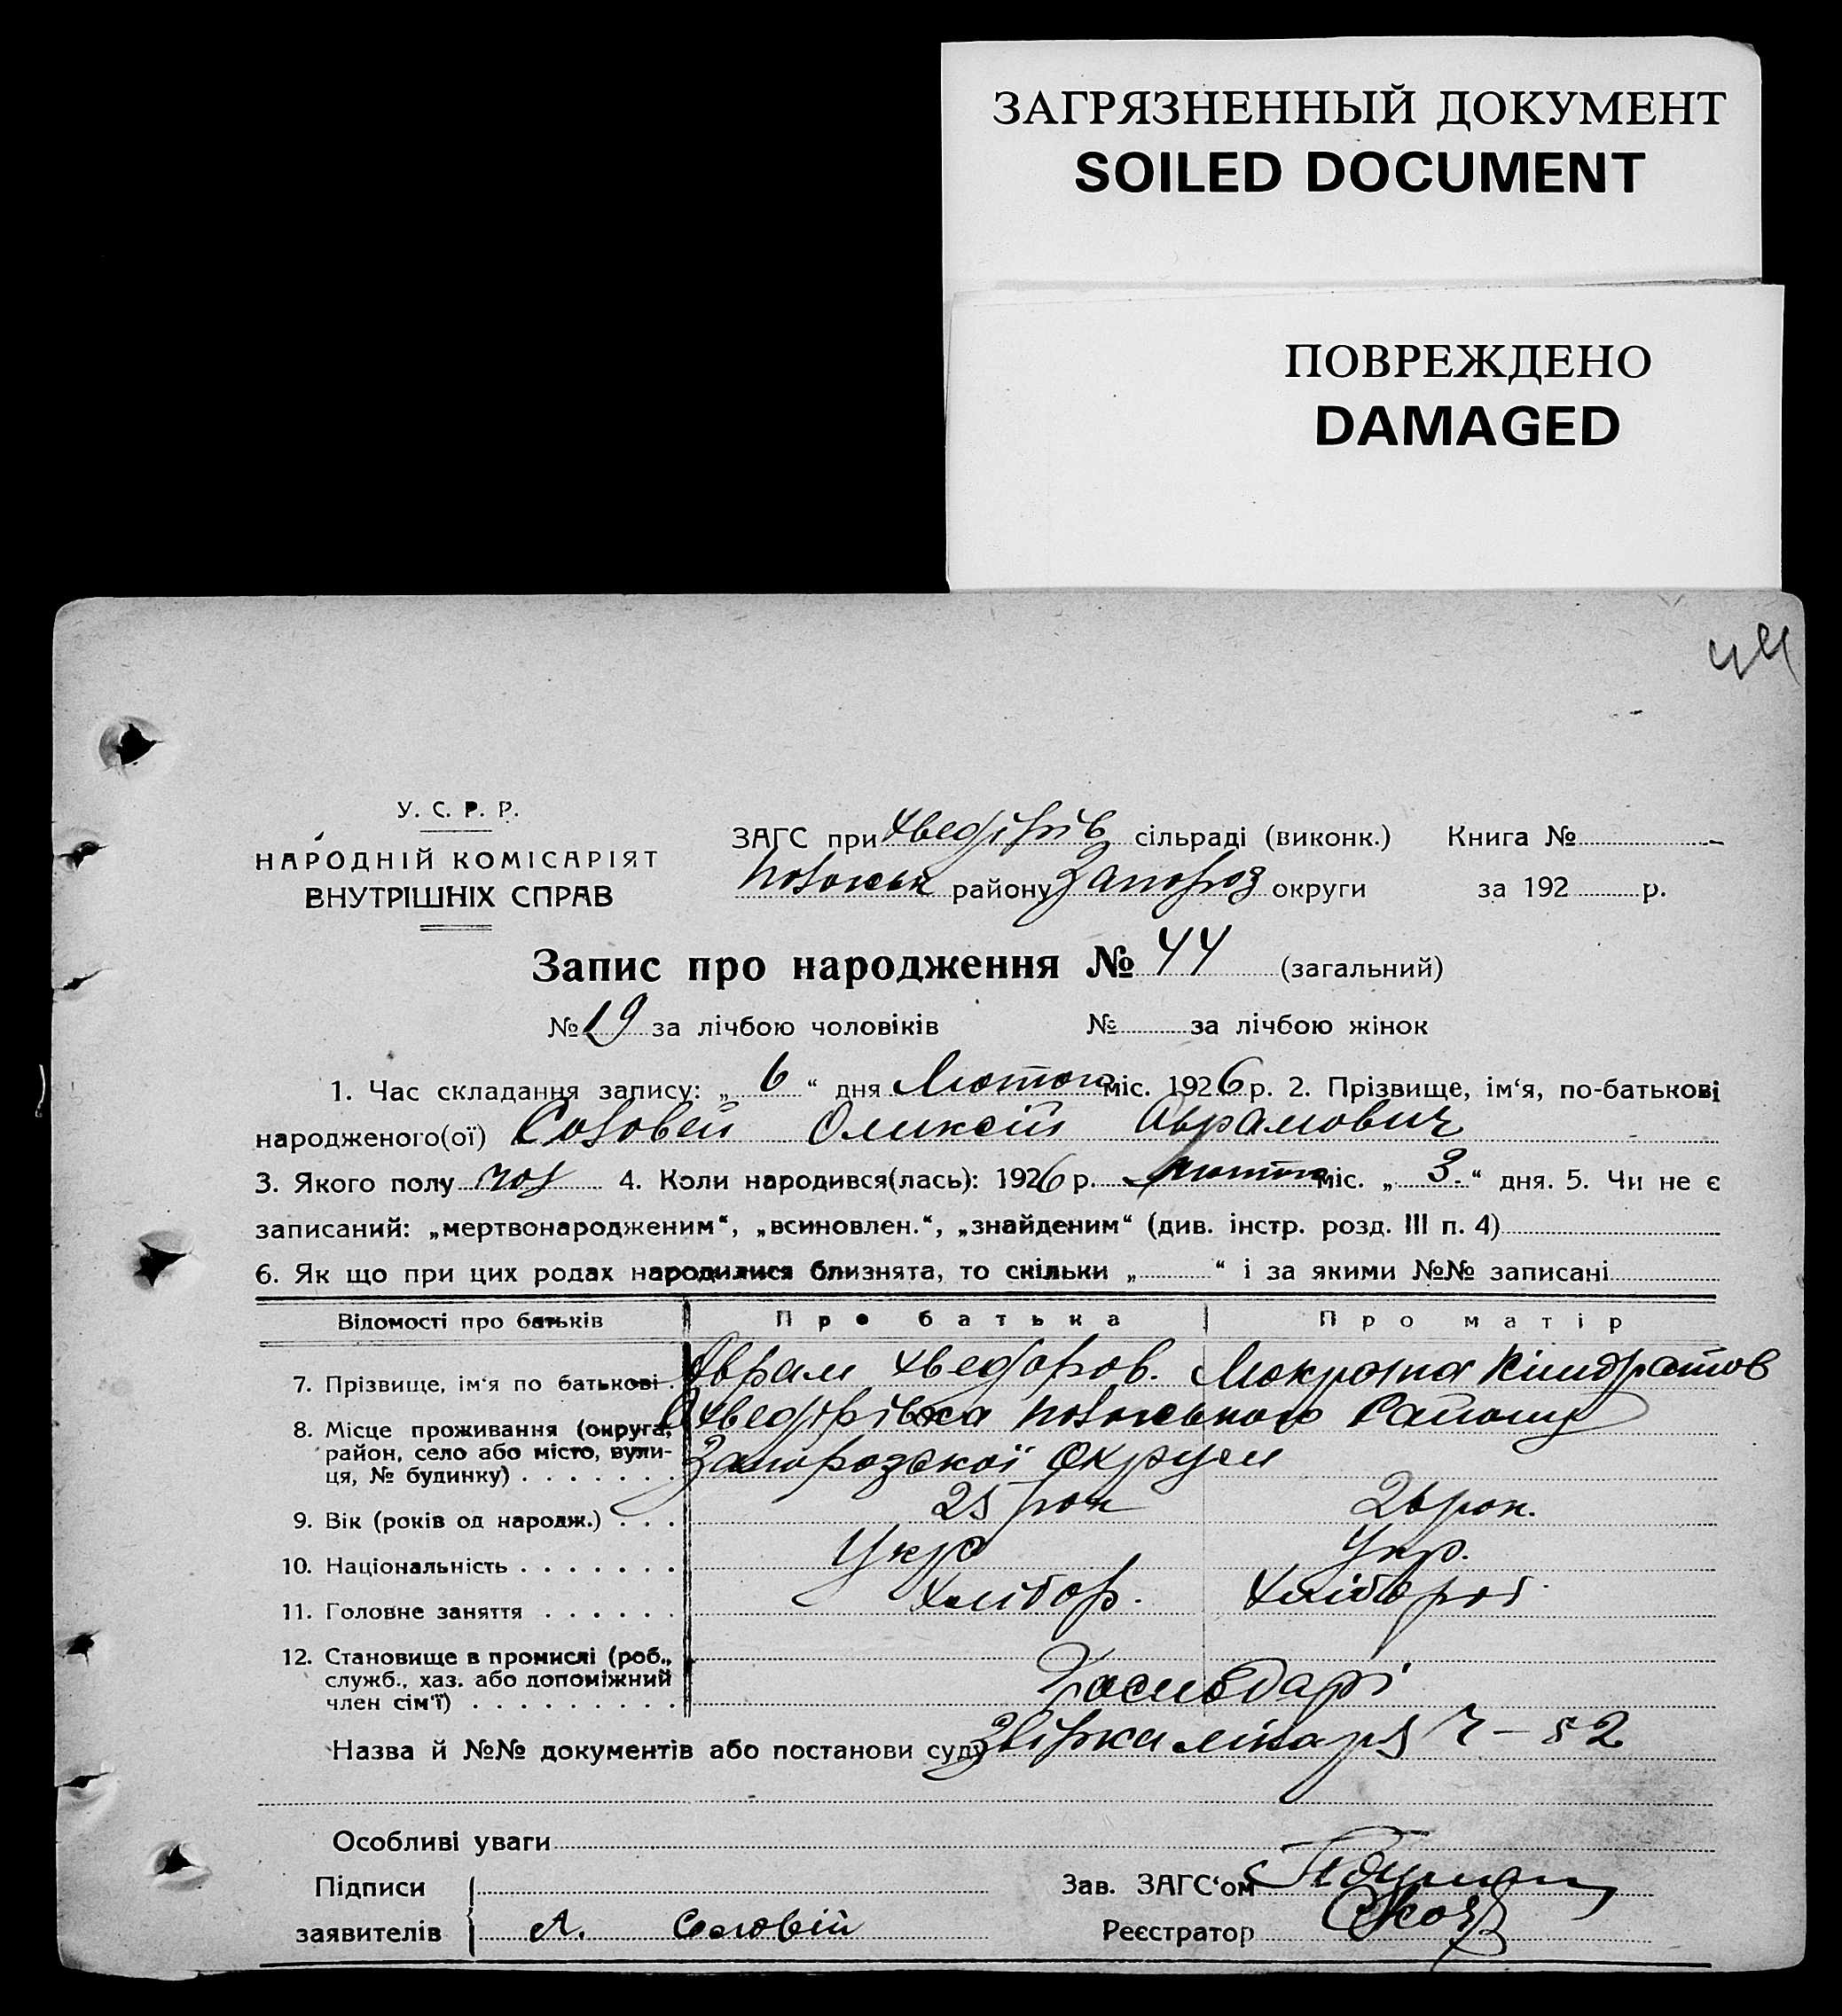 ЗАГРЯЗНЕННЫЙ ДОКУМЕНТ
SOILED DOCUMENT
ПОВРЕЖДЕНО
DAMAGED
44
У. С. Р. Р.
НАРОДНІЙ КОМІСАРІЯТ
ВНУТРІШНІХ СПРАВ
ЗАГС при Хведірів сільраді (виконк.) Книга №
району Запороз округи за 192 р.
Запис про народження № 44 (загальний)
№ 19 за лічбою чоловіків № за лічбою жінок
1. Час складання запису: „ 6 “ дня Лютого міс. 1926 р. 2. Прізвище, ім‘я, по-батькові
народженого(ої) Соловей Оликсій Аврамович
3. Якого полу чол 4. Коли народився(лась): 1926 р. лютого міс. „ 3. “ дня. 5. Чи не є
записаний: „мертвонародженим“, „всиновлен.“, „знайденим“ (див. інстр. розд. III п. 4)
6. Як що при цих родах народилися близнята, то скільки „ “ і за якими №№ записані
Відомості про батьків Про батька Про матір
7. Прізвище, ім‘я по батькові Аврам Хведоров. Мокрина Кіндратов
8. Місце проживання (округа, Хведірівка Району
район, село або місто, вули- Запорозської Округи
ця, № будинку)
9. Вік (років од народж.) 25 рок 26 рок.
10. Національність Укра Укр.
11. Головне заняття Хлібор. Хлібороб
12. Становище в промислі (роб.,
служб., хаз. або допоміжний Хасподарі
член сім‘ї)
Назва й №№ документів або постанови суду ч – 52
Особливі уваги
Підписи Зав. ЗАГС‘ом
заявителів А. Соловій Реєстратор